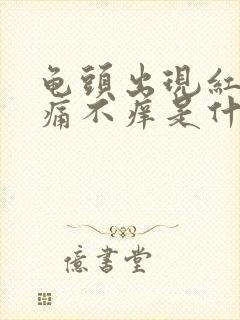 龟頭出現紅
痛不癢是什
億書堂